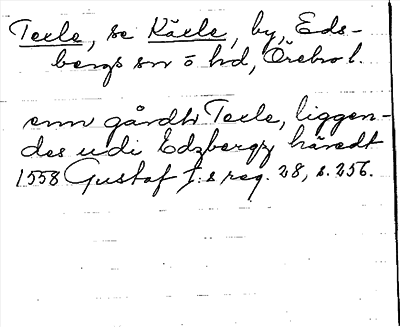 Teele, se Käele, by, Eds-
bergs sn o hd, Örebro l.
enn gårdh Teele, liggen-
des udi Edzbergz häredt
1558 Gustaf I:s reg. 28, s. 256.